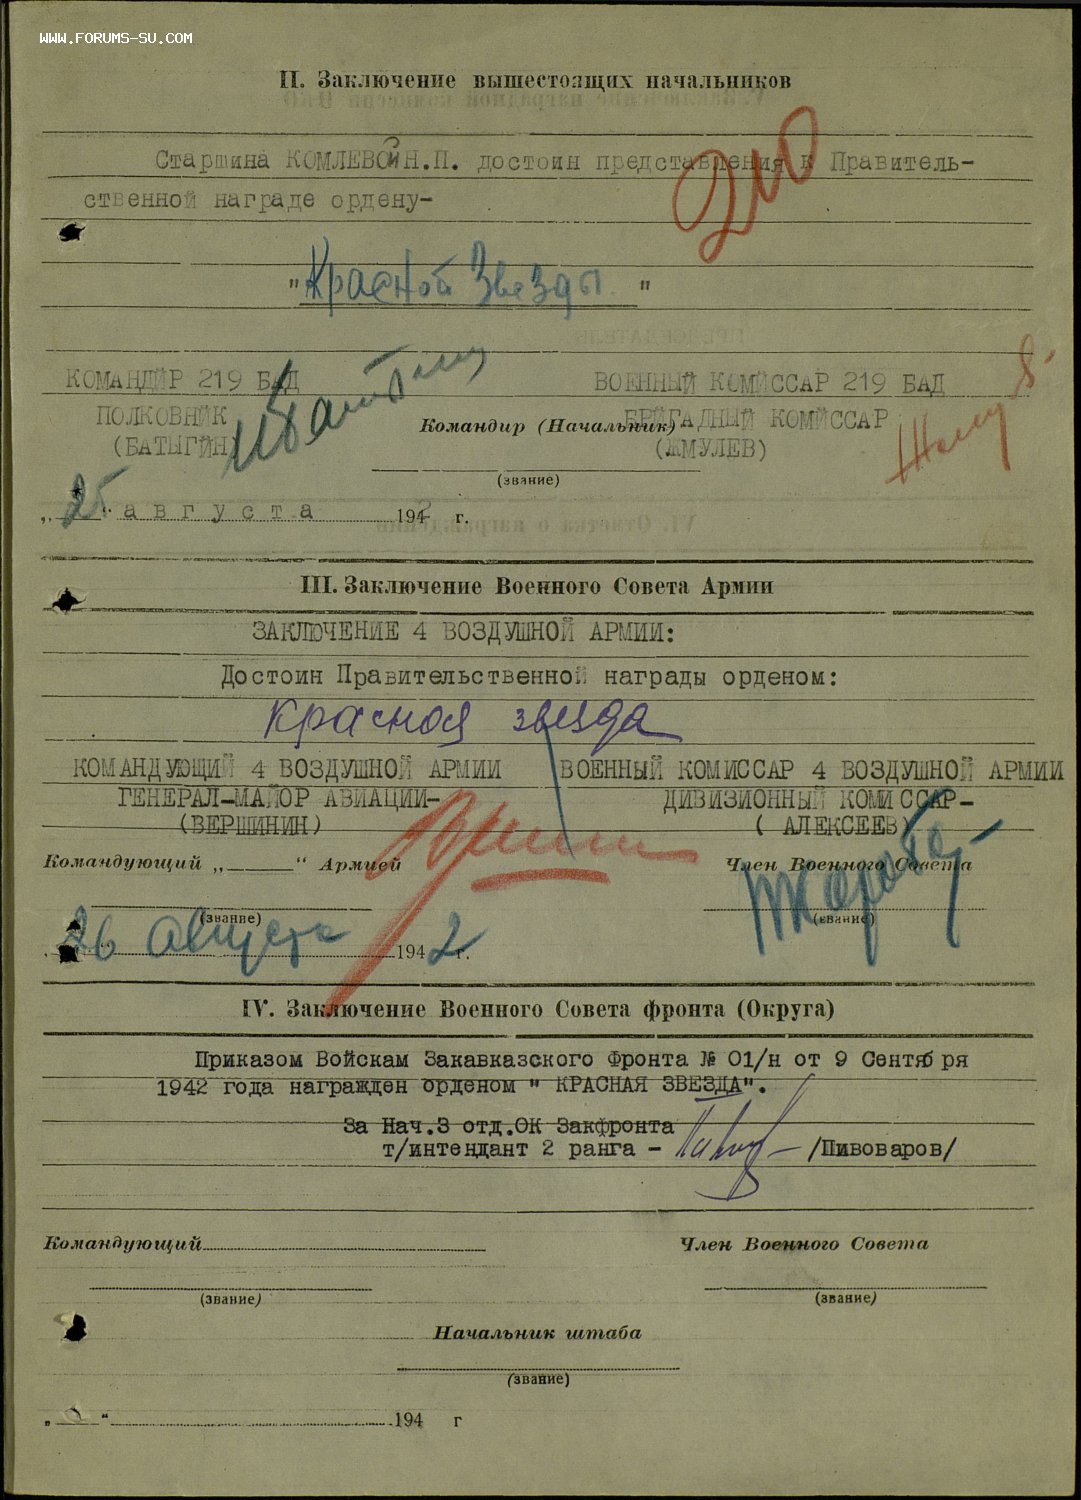 WWW.FORUMS-SU.COM
II. Заключение вышестоящих начальников
210
Старшина КОМЛЕВОЙ Н.П. достоин представления к Правитель-
ственной награде ордену-
"Красной Звезды"
КОМАНДИР 219 БАД
ВОЕННЫЙ КОМИССАР 219 БАД
ПОЛКОВНИК
Командир (Начальник)
БРИГАДНЫЙ КОМИССАР
(БАТЫГИН)
(ЖМУЛЕВ)
(звание)
„25“ августа 1942 г.
III. Заключение Военного Совета Армии
ЗАКЛЮЧЕНИЕ 4 ВОЗДУШНОЙ АРМИИ:
Достоин Правительственной награды орденом:
Красная звезда
КОМАНДУЮЩИЙ 4 ВОЗДУШНОЙ АРМИИ
ВОЕННЫЙ КОМИССАР 4 ВОЗДУШНОЙ АРМИИ
ГЕНЕРАЛ-МАЙОР АВИАЦИИ-
ДИВИЗИОННЫЙ КОМИССАР-
(ВЕРШИНИН)
( АЛЕКСЕЕВ)
Командующий „ “ Армией
Член Военного Совета
(звание)
(звание)
26 августа 1942 г.
IV. Заключение Военного Совета фронта (Округа)
Приказом Войскам Закавказского Фронта № 01/н от 9 Сентября
1942 года награжден орденом " КРАСНАЯ ЗВЕЗДА".
За Нач.3 отд.ОК Закфронта
т/интендант 2 ранга - /Пивоваров/
Командующий
Член Военного Совета
(звание)
(звание)
Начальник штаба
(звание)
„ “ 194 г